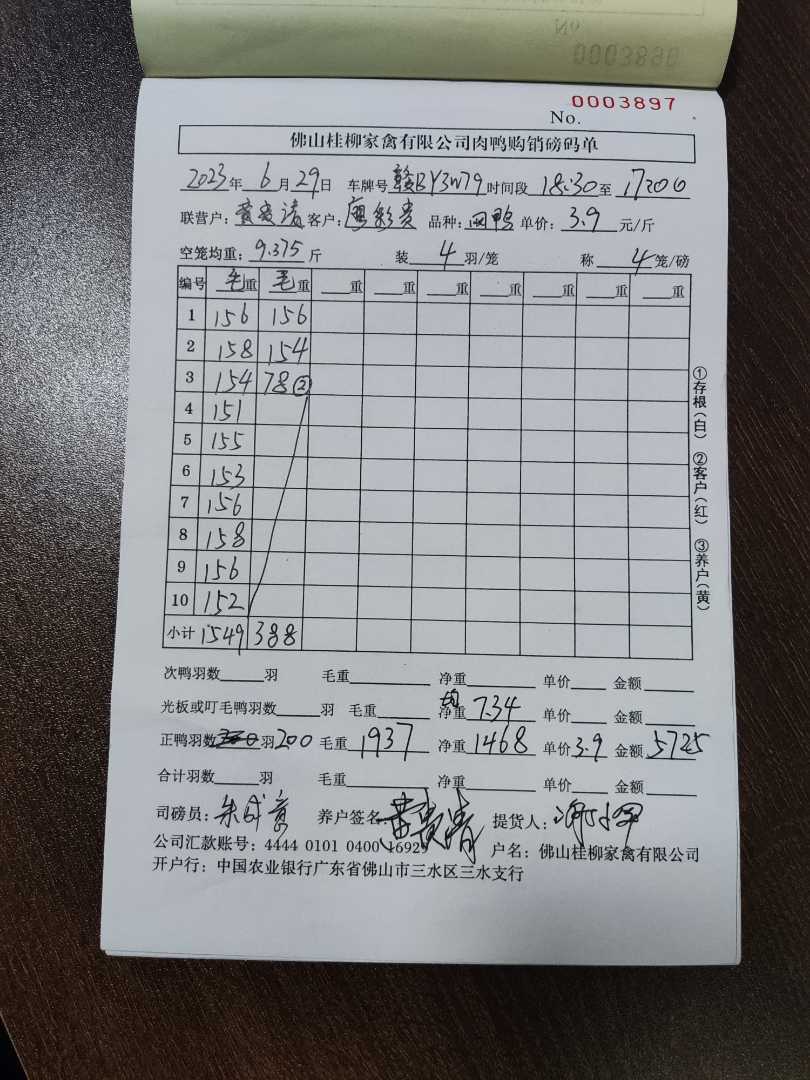 No
0003890
0003897
No.
佛山桂柳家禽有限公司肉鸭购销磅码单
2023年 6月29日 车牌号赣BY3W79时间段 18:30至 17200
联营户: 客户: 品种: 鸭 单价: 3.9 元/斤
空笼均重: 9.375 斤 装 4 羽/笼 称 4 笼/磅
编号 毛重 毛重 重 重 重 重 重 重 重
1 156 156
2 158 154
3 154 78②
4 151
5 155
6 153
7 156
8 158
9 156
10 152
小计 1549 388
次鸭羽数 羽 毛重 净重 单价 金额
光板或叮毛鸭羽数 羽 毛重 均 净重 7.34 单价 金额
正鸭羽数 羽 200 毛重 1937 净重 1468 单价 3.9 金额 5725
合计羽数 羽 毛重 净重 单价 金额
司磅员: 朱成意 养户签名 提货人:
公司汇款账号: 4444 0101 0400 16929 户名: 佛山桂柳家禽有限公司
开户行: 中国农业银行广东省佛山市三水区三水支行
①存根(白) ②客户(红) ③养户(黄)